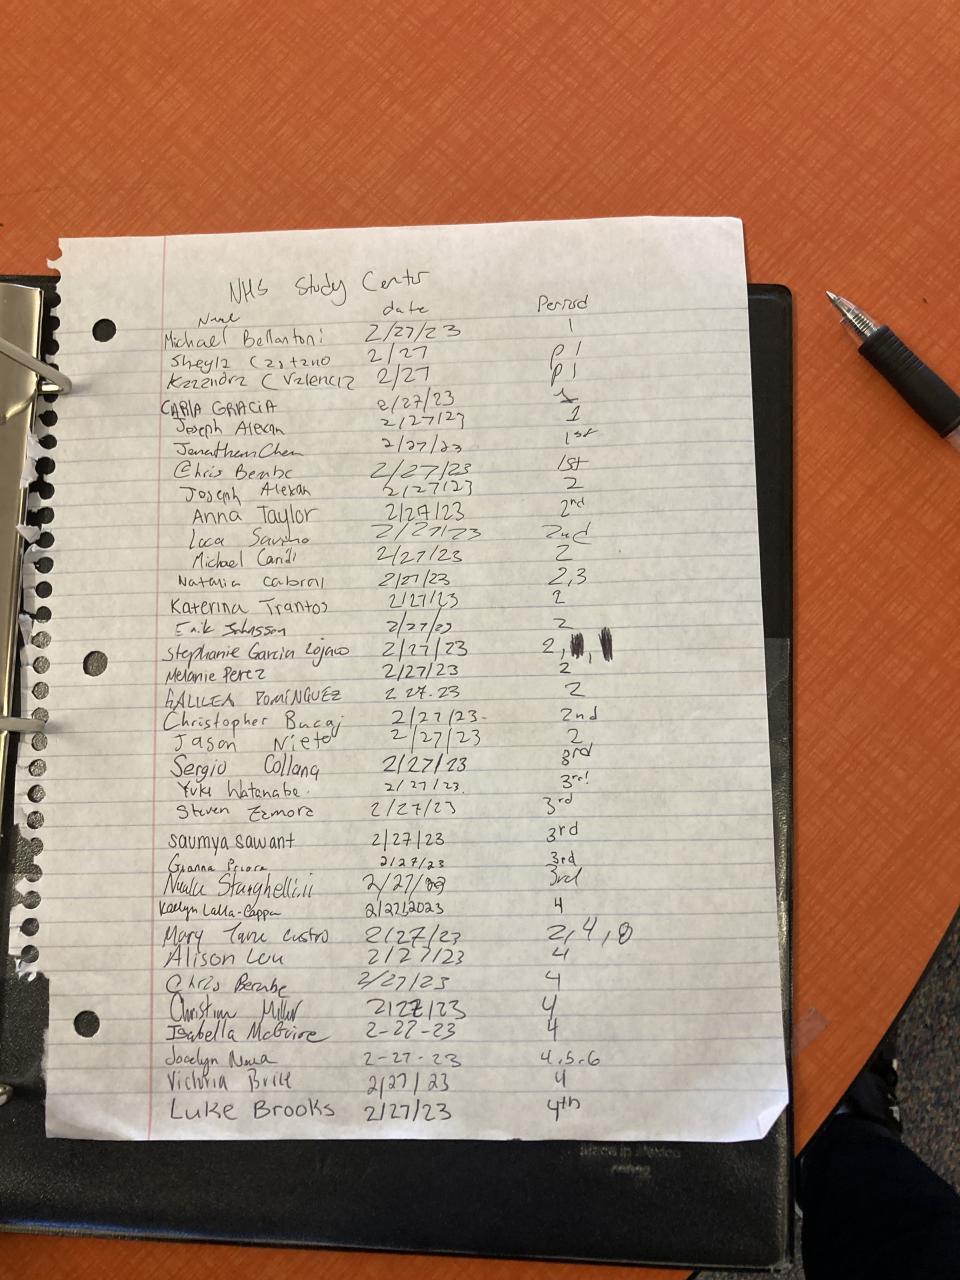 NHS Study Center
Name date Period
Michael Bellantoni 2/27/23 1
Sheyla Castano 2/27 p1
Kazandra C Valencia 2/27 p1
CARLA GRACIA 2/27/23 1
Joseph Alexan 2/27/23 1
Jonathan Chen 2/27/23 1st
Chris Bernbe 2/27/23 1st
Joseph Alexan 2/27/23 2
Anna Taylor 2/27/23 2nd
Luca Savino 2/27/23 2nd
Michael 2/27/23 2
Natalia Cabral 2/27/23 2,3
Katerina Trantos 2/27/23 2
Erik Johnsson 2/27/23 2
Stephanie Garcia 2/27/23 2,
Melanie Perez 2/27/23 2
GALILEA DOMINGUEZ 2 27.23 2
Christopher Bucaj 2/27/23- 2nd
Jason Nieto 2/27/23 2
Sergio Collana 2/27/23 3rd
Yuki Watanabe. 2/27/23. 3rd
Steven Zamora 2/27/23 3rd
saumya sawant 2/27/23 3rd
Gianna Priora 2/27/23 3rd
2/27/23 3rd
Kaelyn Lalla-Cappa 2/27/2023 4
Mary Jane Castro 2/27/23 2,4,8
Alison Lou 2/27/23 4
Chris Bernbe 2/27/23 4
Christian Miller 2/27/23 4
Isabella McGuire 2-27-23 4
Jocelyn Nova 2-27-23 4,5,6
Victoria Brill 2/27/23 4
Luke Brooks 2/27/23 4th
Made in Mexico